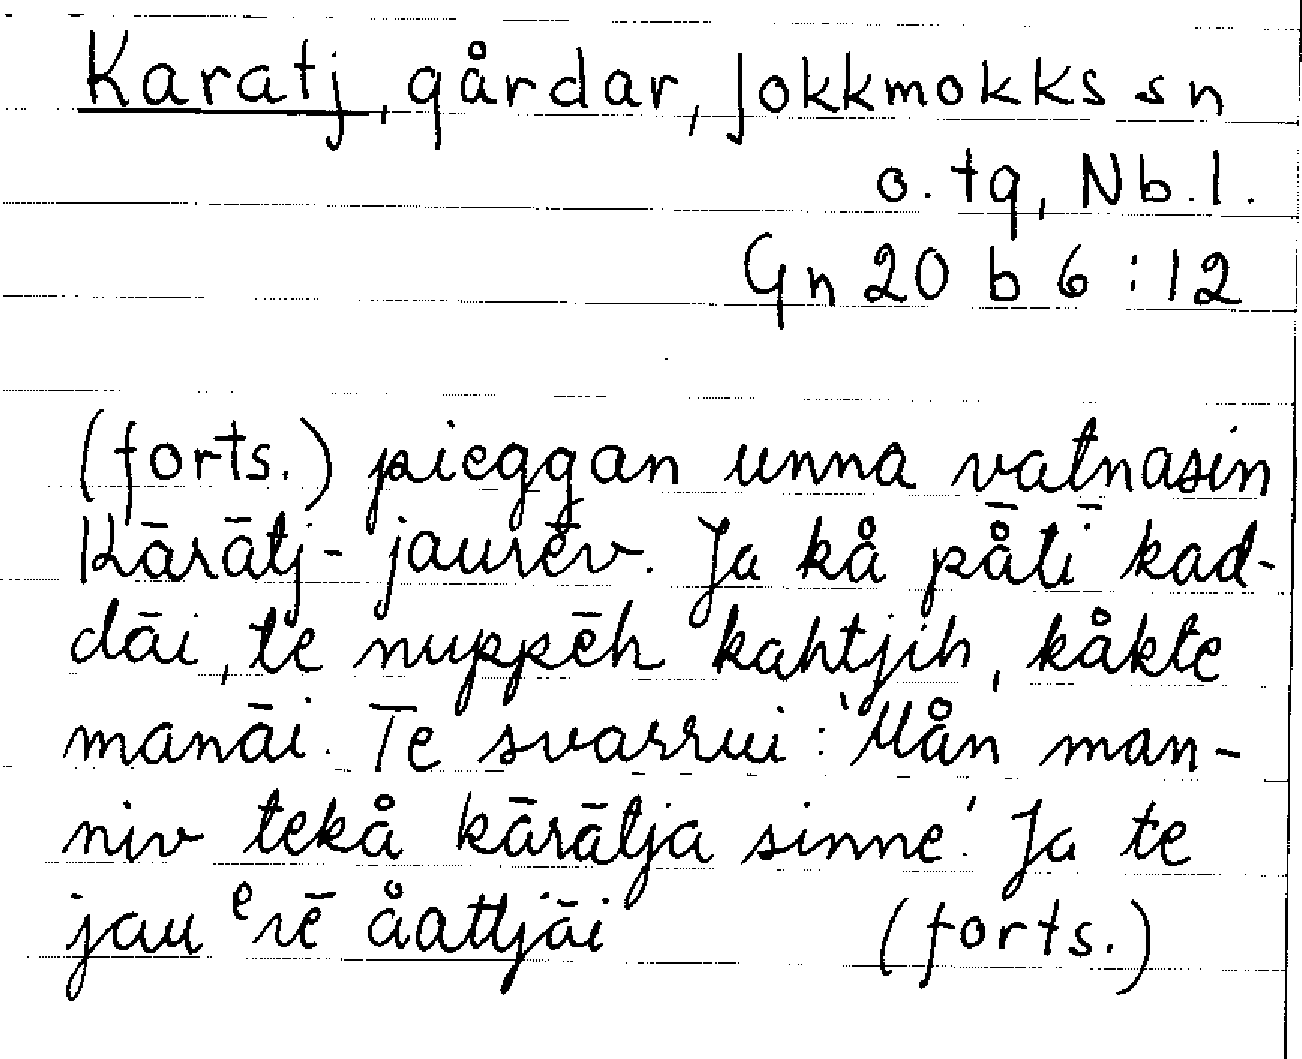 Karatj, gårdar, Jokkmokks sn
o. tg, Nb. l.
Gn 20 b 6 : 12
(forts.) pieggan unna vatnasin
Kārātj- jaurēv. Ja kå på̄tī kad-
dāi, te nuppēh kahtjih, kåkte
manāi. Te svarrui : 'Mån man-
niv tekå kārātja sinne'. Ja te
jauᵉrē åattjāi (forts.)